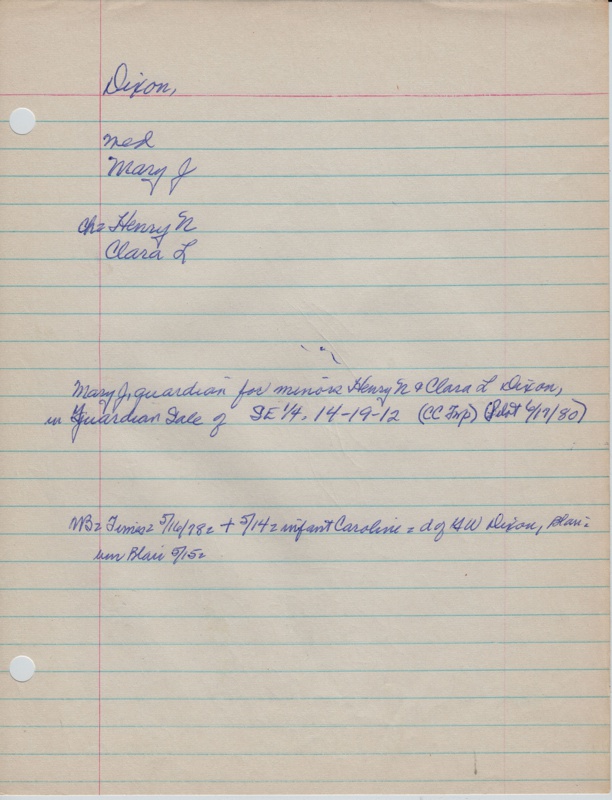 Dixon,
med
Mary J
ch= Henry N
Clara L
Mary J, guardian for minors Henry N & Clara L Dixon,
in Guardian Sale of SE 1/4, 14-19-12 (CC Twp) (Pilot 6/17/80)
NB= Times= 5/16/78= + 5/14= infant Caroline = d of G W Dixon, Blair=
bur Blair 5/15=